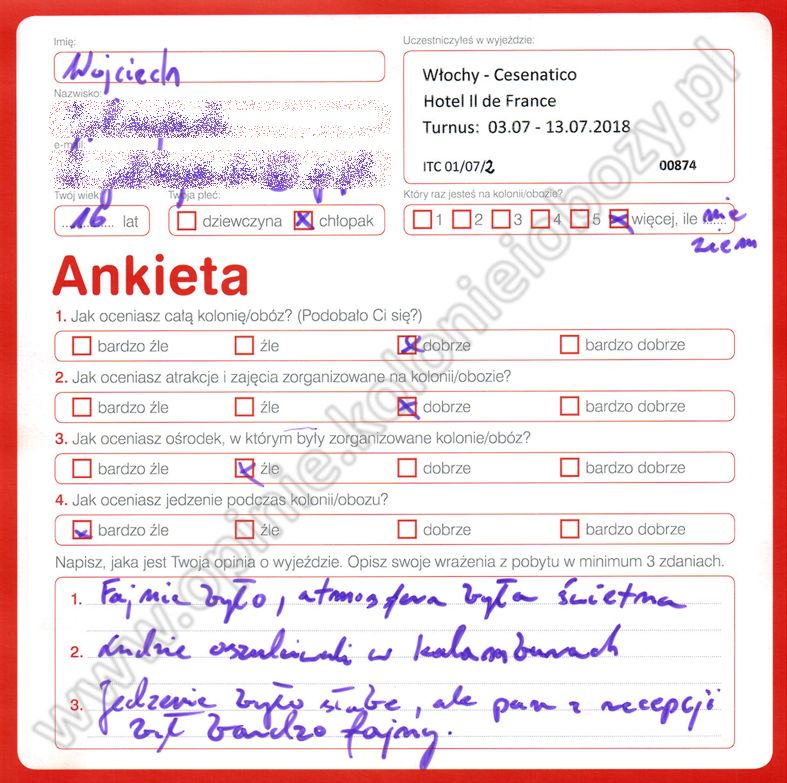 Imię:
Wojciech
Uczestniczyłeś w wyjeździe:
Włochy - Cesenatico
Hotel Il de France
Turnus: 03.07 - 13.07.2018
ITC 01/07/2 00874
Nazwisko:
e-mail
Twój wiek
16 lat
Twoja płeć:
dziewczyna chłopak
Który raz jesteś na kolonii/obozie?
1 2 3 4 5 więcej, ile nie
wiem
Ankieta
1. Jak oceniasz całą kolonię/obóz? (Podobało Ci się?)
bardzo źle źle dobrze bardzo dobrze
2. Jak oceniasz atrakcje i zajęcia zorganizowane na kolonii/obozie?
bardzo źle źle dobrze bardzo dobrze
3. Jak oceniasz ośrodek, w którym były zorganizowane kolonie/obóz?
bardzo źle źle dobrze bardzo dobrze
4. Jak oceniasz jedzenie podczas kolonii/obozu?
bardzo źle źle dobrze bardzo dobrze
Napisz, jaka jest Twoja opinia o wyjeździe. Opisz swoje wrażenia z pobytu w minimum 3 zdaniach.
1. Fajnie było, atmosfera była świetna
2. Ludzie oszukiwali w kalamburach
3. Jedzenie było słabe, ale pan z recepcji
był bardzo fajny.
www.opinie.kolonieiobozy.pl